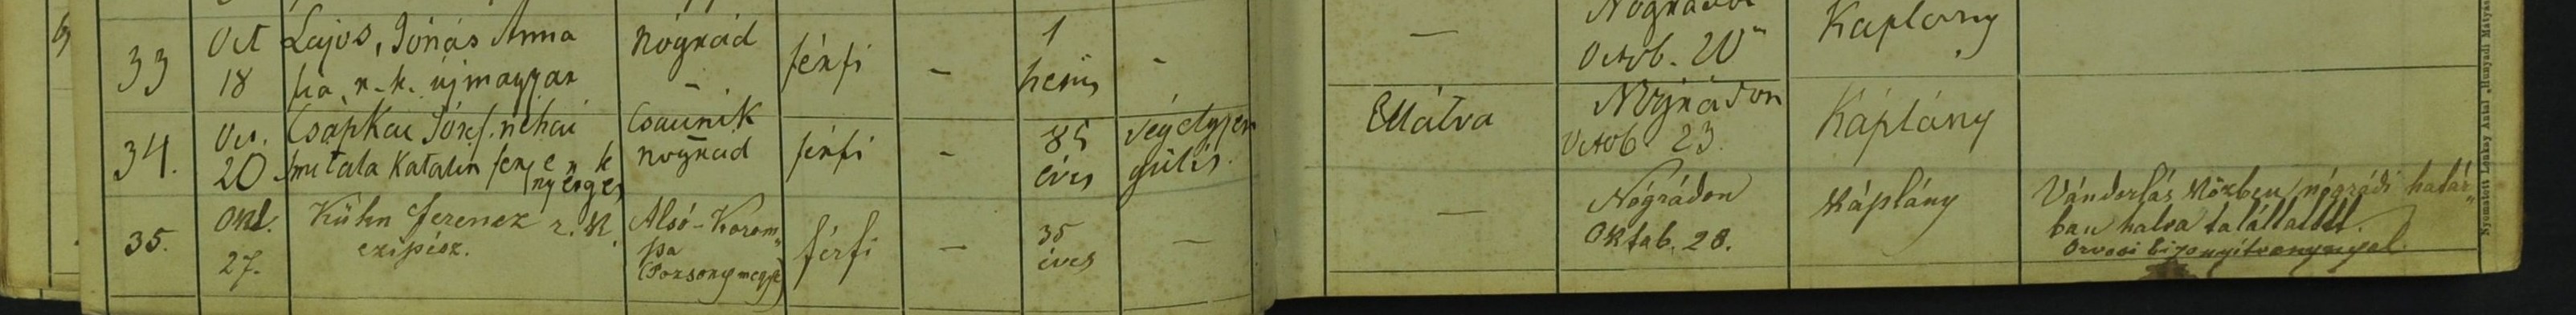 33
Oct
18
Lajos, Jónás Anna
fia, r. k. újmagyar
Nógrád
–
férfi
–
1
hetes
–
—
Nógrádon
Octob. 20
Káplány
34.
Oct.
20
Csapkai József. néhai
Katalin
k
Csaunik
Nógrád
férfi
–
85
éves
végelgyen
gülés.
Ellátva
Nógrádon
Octob. 23.
Káplány
35.
Okt.
27.
Kühn Ferencz r. k.
czipész.
Alsó-Korom„
pa
(Pozsony megye)
férfi
–
35
éves
—
—
Nógrádon
Oktob. 28.
Káplány
Vándorlás közben nógrádi határ„
ban halva találtatott.
Orvosi bizonyítványnyal.
Nyomatott Lonkay Antal „Hunyadi Mátyás